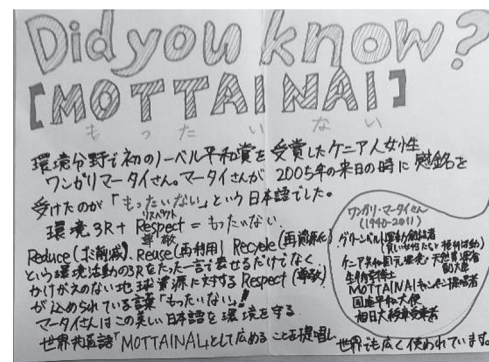 Did you know?
[MOTTAINAI]
もったいない
環境分野で初のノーベル平和賞を受賞したケニア人女性
ワンガリマータイさん。マータイさんが2005年の来日の時に感銘を
受けたのが「もったいない」という日本語でした。
リスペクト
環境3R+Respect=もったいない
尊敬
Reduce(ゴミ削減)、Reuse(再利用)、Recycle(再資源化)
という環境活動の3Rをたった一言で表せるだけでなく、
かけがえのない地球資源に対するRespect(尊敬)
が込められている言葉「もったいない」!
マータイさんはこの美しい日本語を環境を守る
世界共通語「MOTTAINAI」として広めることを提唱し、世界でも広く使われています。
ワンガリ・マータイさん
(1940-2011)
グリーンベルト運動創設者
ケニア共和国元環境・天然資源省
副大臣
生物学博士
MOTTAINAIキャンペーン提唱者
国連平和大使
旭日大綬章受章者